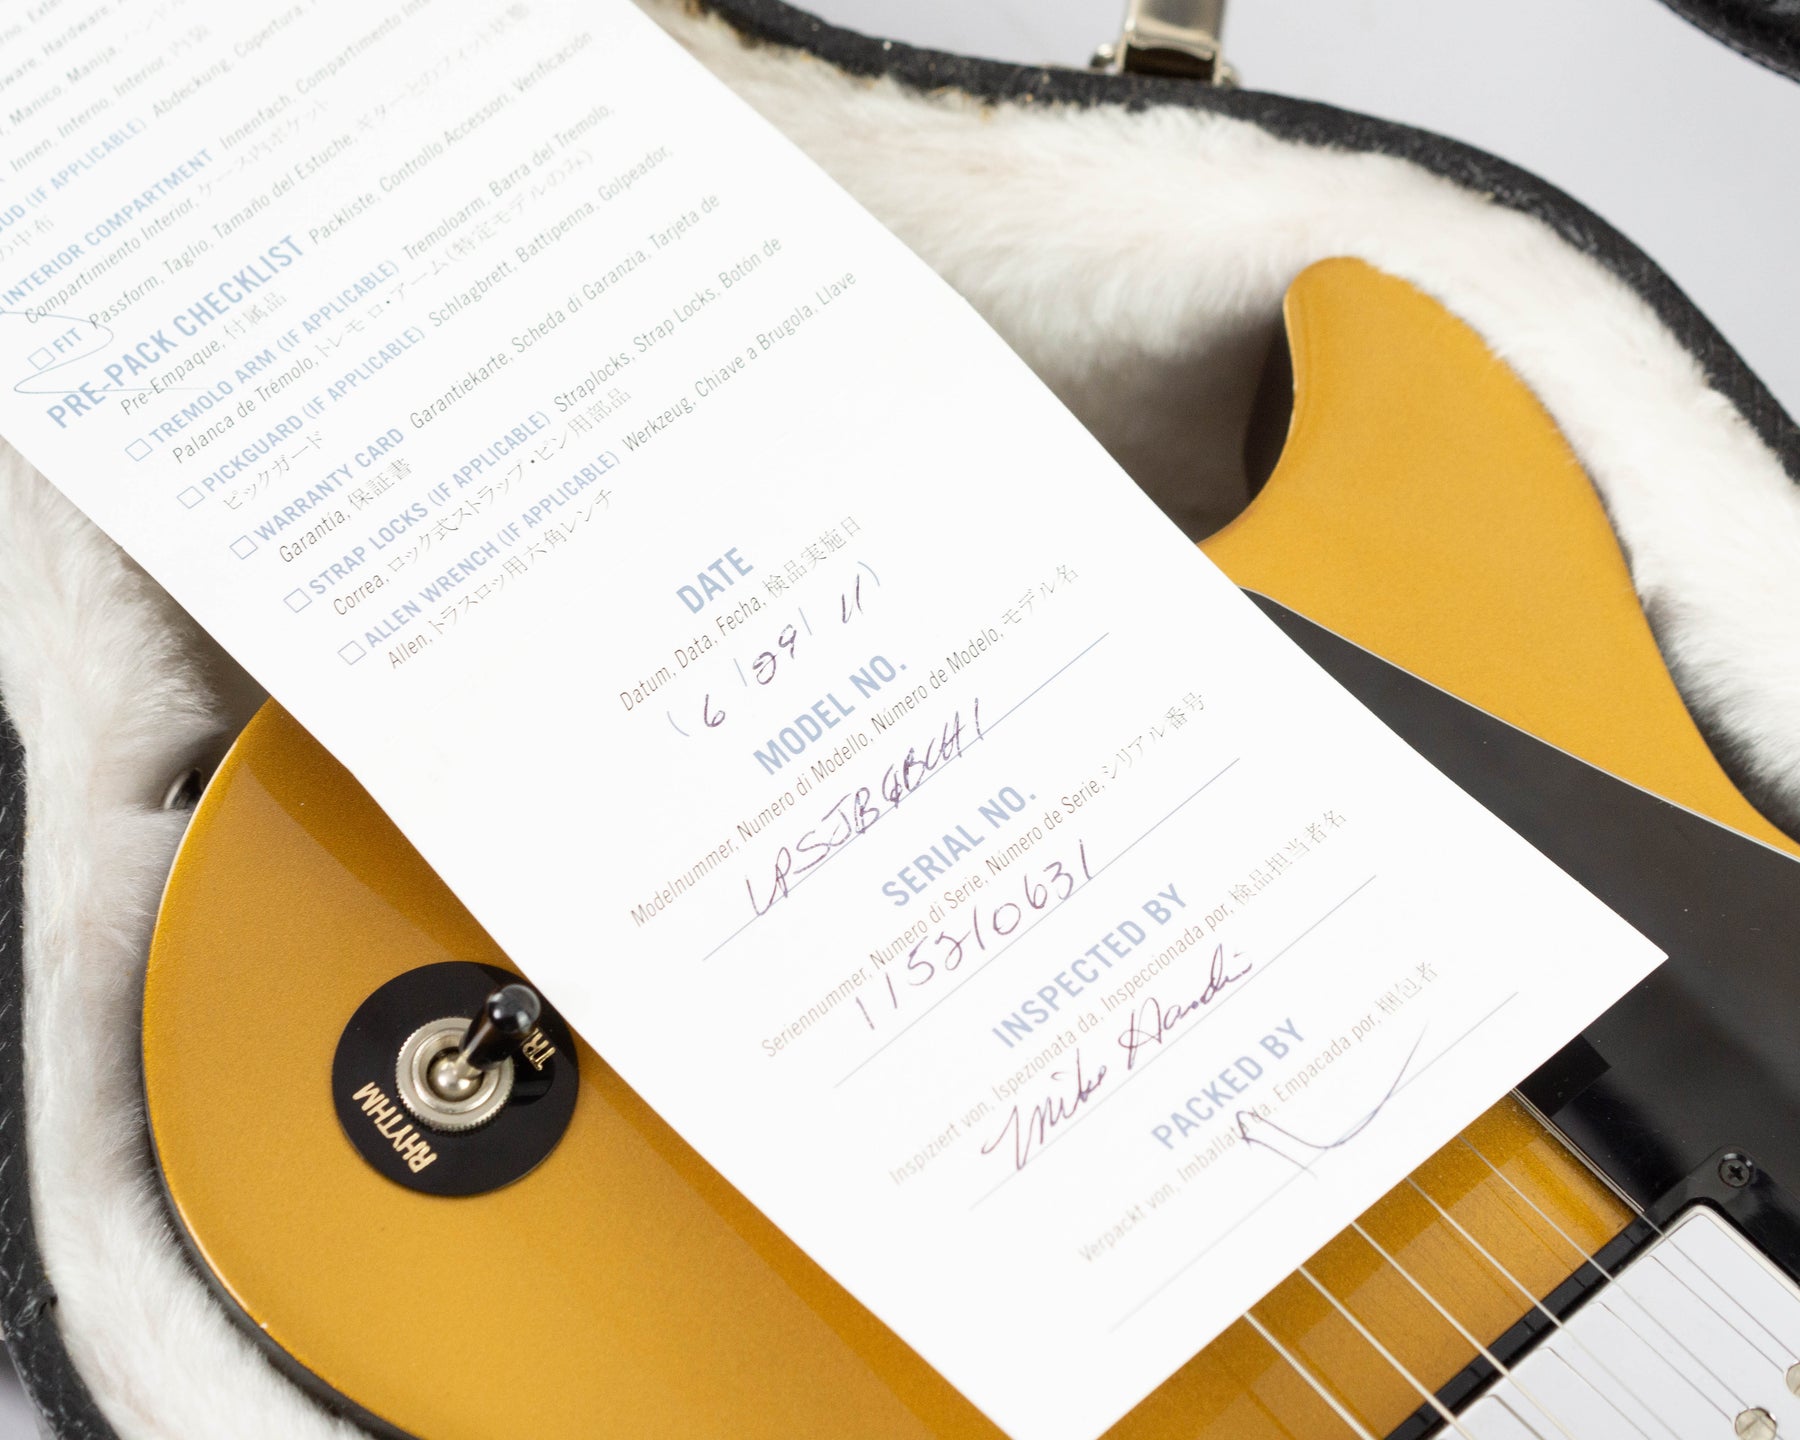 Manico, Manija, ハンドル
Innen, Interno, Interior, 内装
(IF APPLICABLE) Abdeckung, Copertura,
INTERIOR COMPARTMENT Innenfach, Compartimento
Compartimiento Interior, ケース内ポケット
FIT Passform, Taglio, Tamaño del Estuche, ギターとのフィット状態
PRE-PACK CHECKLIST Packliste, Controllo Accessori, Verificación
Pre-Empaque, 付属品
TREMOLO ARM (IF APPLICABLE) Tremoloarm, Barra del Tremolo,
Palanca de Trémolo, トレモロ・アーム(特定モデルのみ)
PICKGUARD (IF APPLICABLE) Schlagbrett, Battipenna, Golpeador,
ピックガード
WARRANTY CARD Garantiekarte, Scheda di Garanzia, Tarjeta de
Garantía, 保証書
STRAP LOCKS (IF APPLICABLE) Straplocks, Strap Locks, Botón de
Correa, ロック式ストラップ・ピン用部品
ALLEN WRENCH (IF APPLICABLE) Werkzeug, Chiave a Brugola, Llave
Allen, トラスロッツ用六角レンチ
DATE
Datum, Data, Fecha, 検品実施日
6 / 29 / 11
MODEL NO.
Modelnummer, Numero di Modello, Número de Modelo, モデル名
SERIAL NO.
Seriennummer, Numero di Serie, Número de Serie, シリアル番号
115210631
INSPECTED BY
Inspiziert von, Ispezionata da, Inspeccionada por, 検品担当者名
Mike
PACKED BY
Verpackt von, Imballata da, Empacada por, 梱包者
RHYTHM
TR